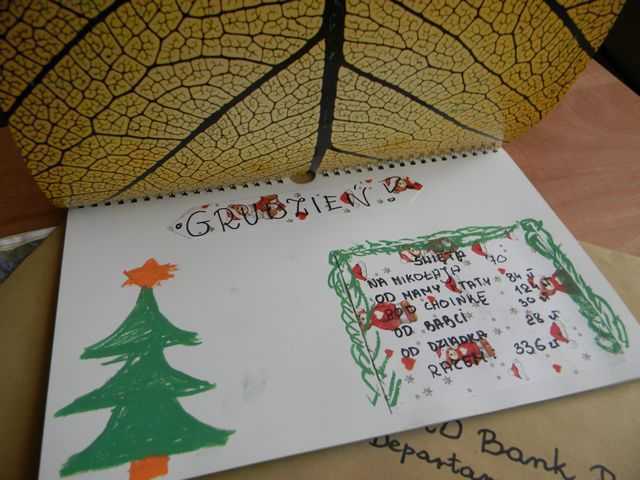 GRUDZIEŃ!
ŚWIĘTA
NA MIKOŁAJA 70
OD MAMY I TATY 84 zł
POD CHOINKĘ 124 zł
OD BABCI 30 zł
OD DZIADKA 28 zł
RAZEM 336 zł
Bank